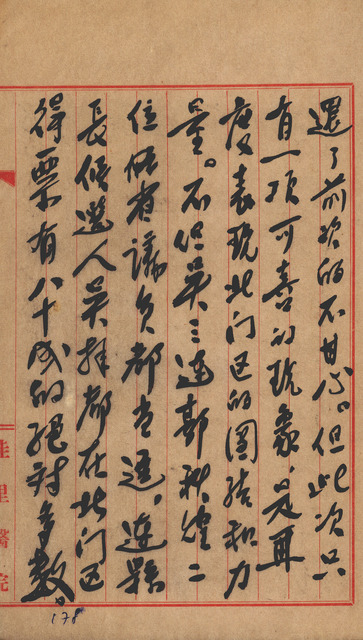 還了前次的不甘心。但此次只
有一項可喜的現象、是再
度表現北门区的團結和力
量。不但吳三連郭秋煌二
位做省議員都当選。連縣
長候選人吳拜都在北门区
得票有八十成的絕對多數。
佳里醫院
178